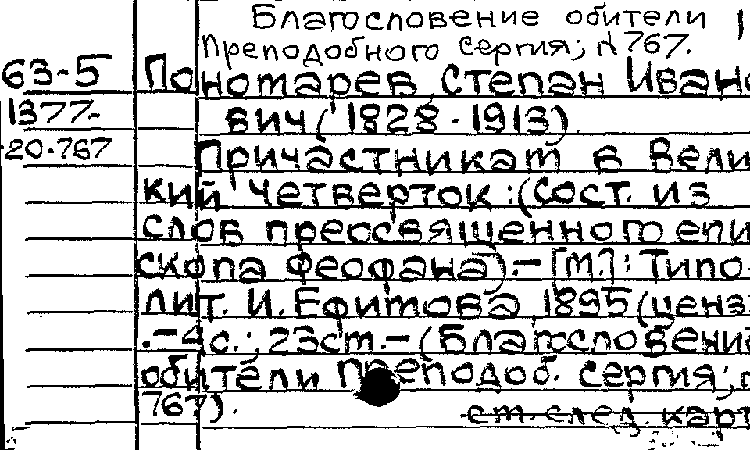 Благословение обители
Преподобного Сергия; № 767.
63-5 Пономарев, Степан Ивано-
1377- вич (1828-1913).
20-767 Причастникам в Вели-
кий четверток: (Сост. из
слов преосвященного епи-
скопа Феофана).-[М.]: Типо-
лит. И. Ефимова, 1895 (ценз.
.-4с.; 23см.-(Благословение
обители Преподоб. Сергия;
767).
ст. след. карт